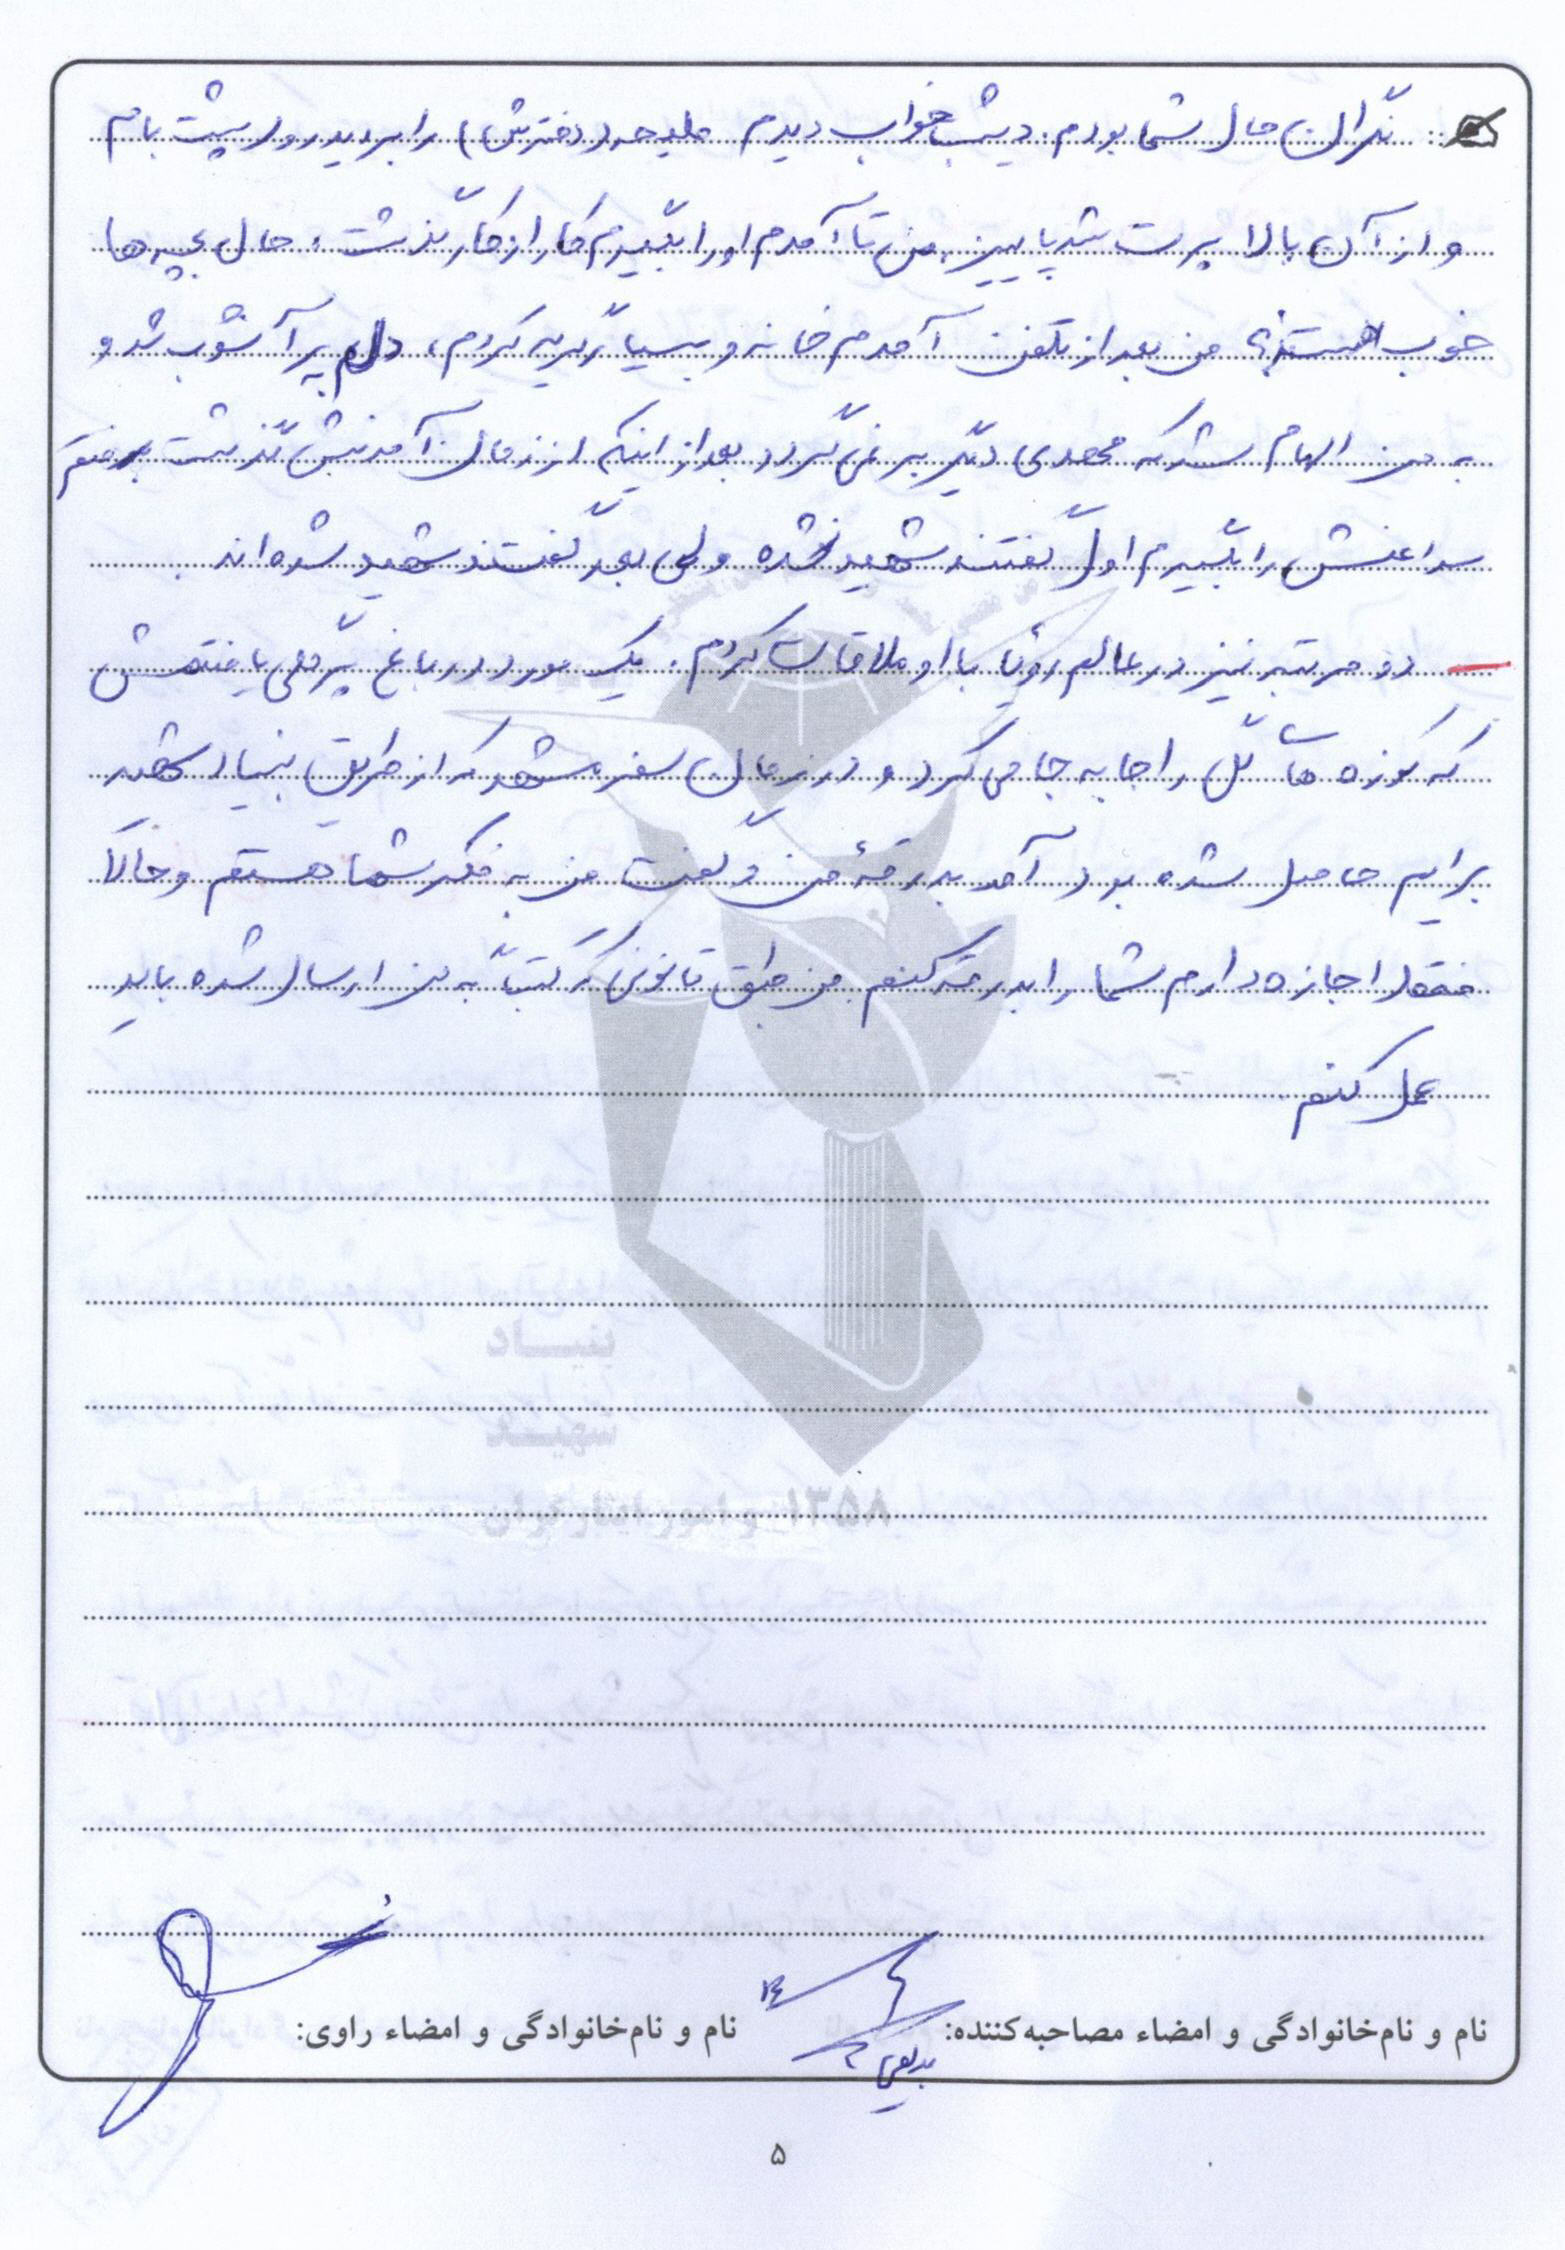 نگران حال شما بودم. دیشب خواب دیدم ملیحه (دخترش) را بردید روی پشت بام
و از آن بالا پرت شد پایین. من تا آمدم او را بگیرم کار از کار گذشت، حال بچه ها
خوب هستند؟ من بعد از تلفن آمدم خانه و بسیار گریه کردم، دلم پر آشوب شد و
به من الهام شد که محمدی دیگر بر نمی گردد بعد از اینکه از زمان آمدنش گذشت رفتم
سراغش را بگیرم اول گفتند شهید نشده ولی بعد گفتند شهید شده اند.
— دو مرتبه نیز در عالم رؤیا با او ملاقات کردم. یک مورد در باغ پر گلی یافتمش
که کوزه های گل را جا به جا می کرد و در زمان سفر مشهد که از طریق بنیاد شهید
برایم حاصل شده بود آمد بدرقهٔ من و گفت من به فکر شما هستم و حالا
فقط اجازه دارم شما را بدرقه کنم. من طبق قانونی که کتباً به من ارسال شده باید
عمل کنم
بنیاد
شهید
۱۳۵۸ و امور ایثارگران
نام و نام‌خانوادگی و امضاء مصاحبه‌کننده: نام و نام‌خانوادگی و امضاء راوی:
۵